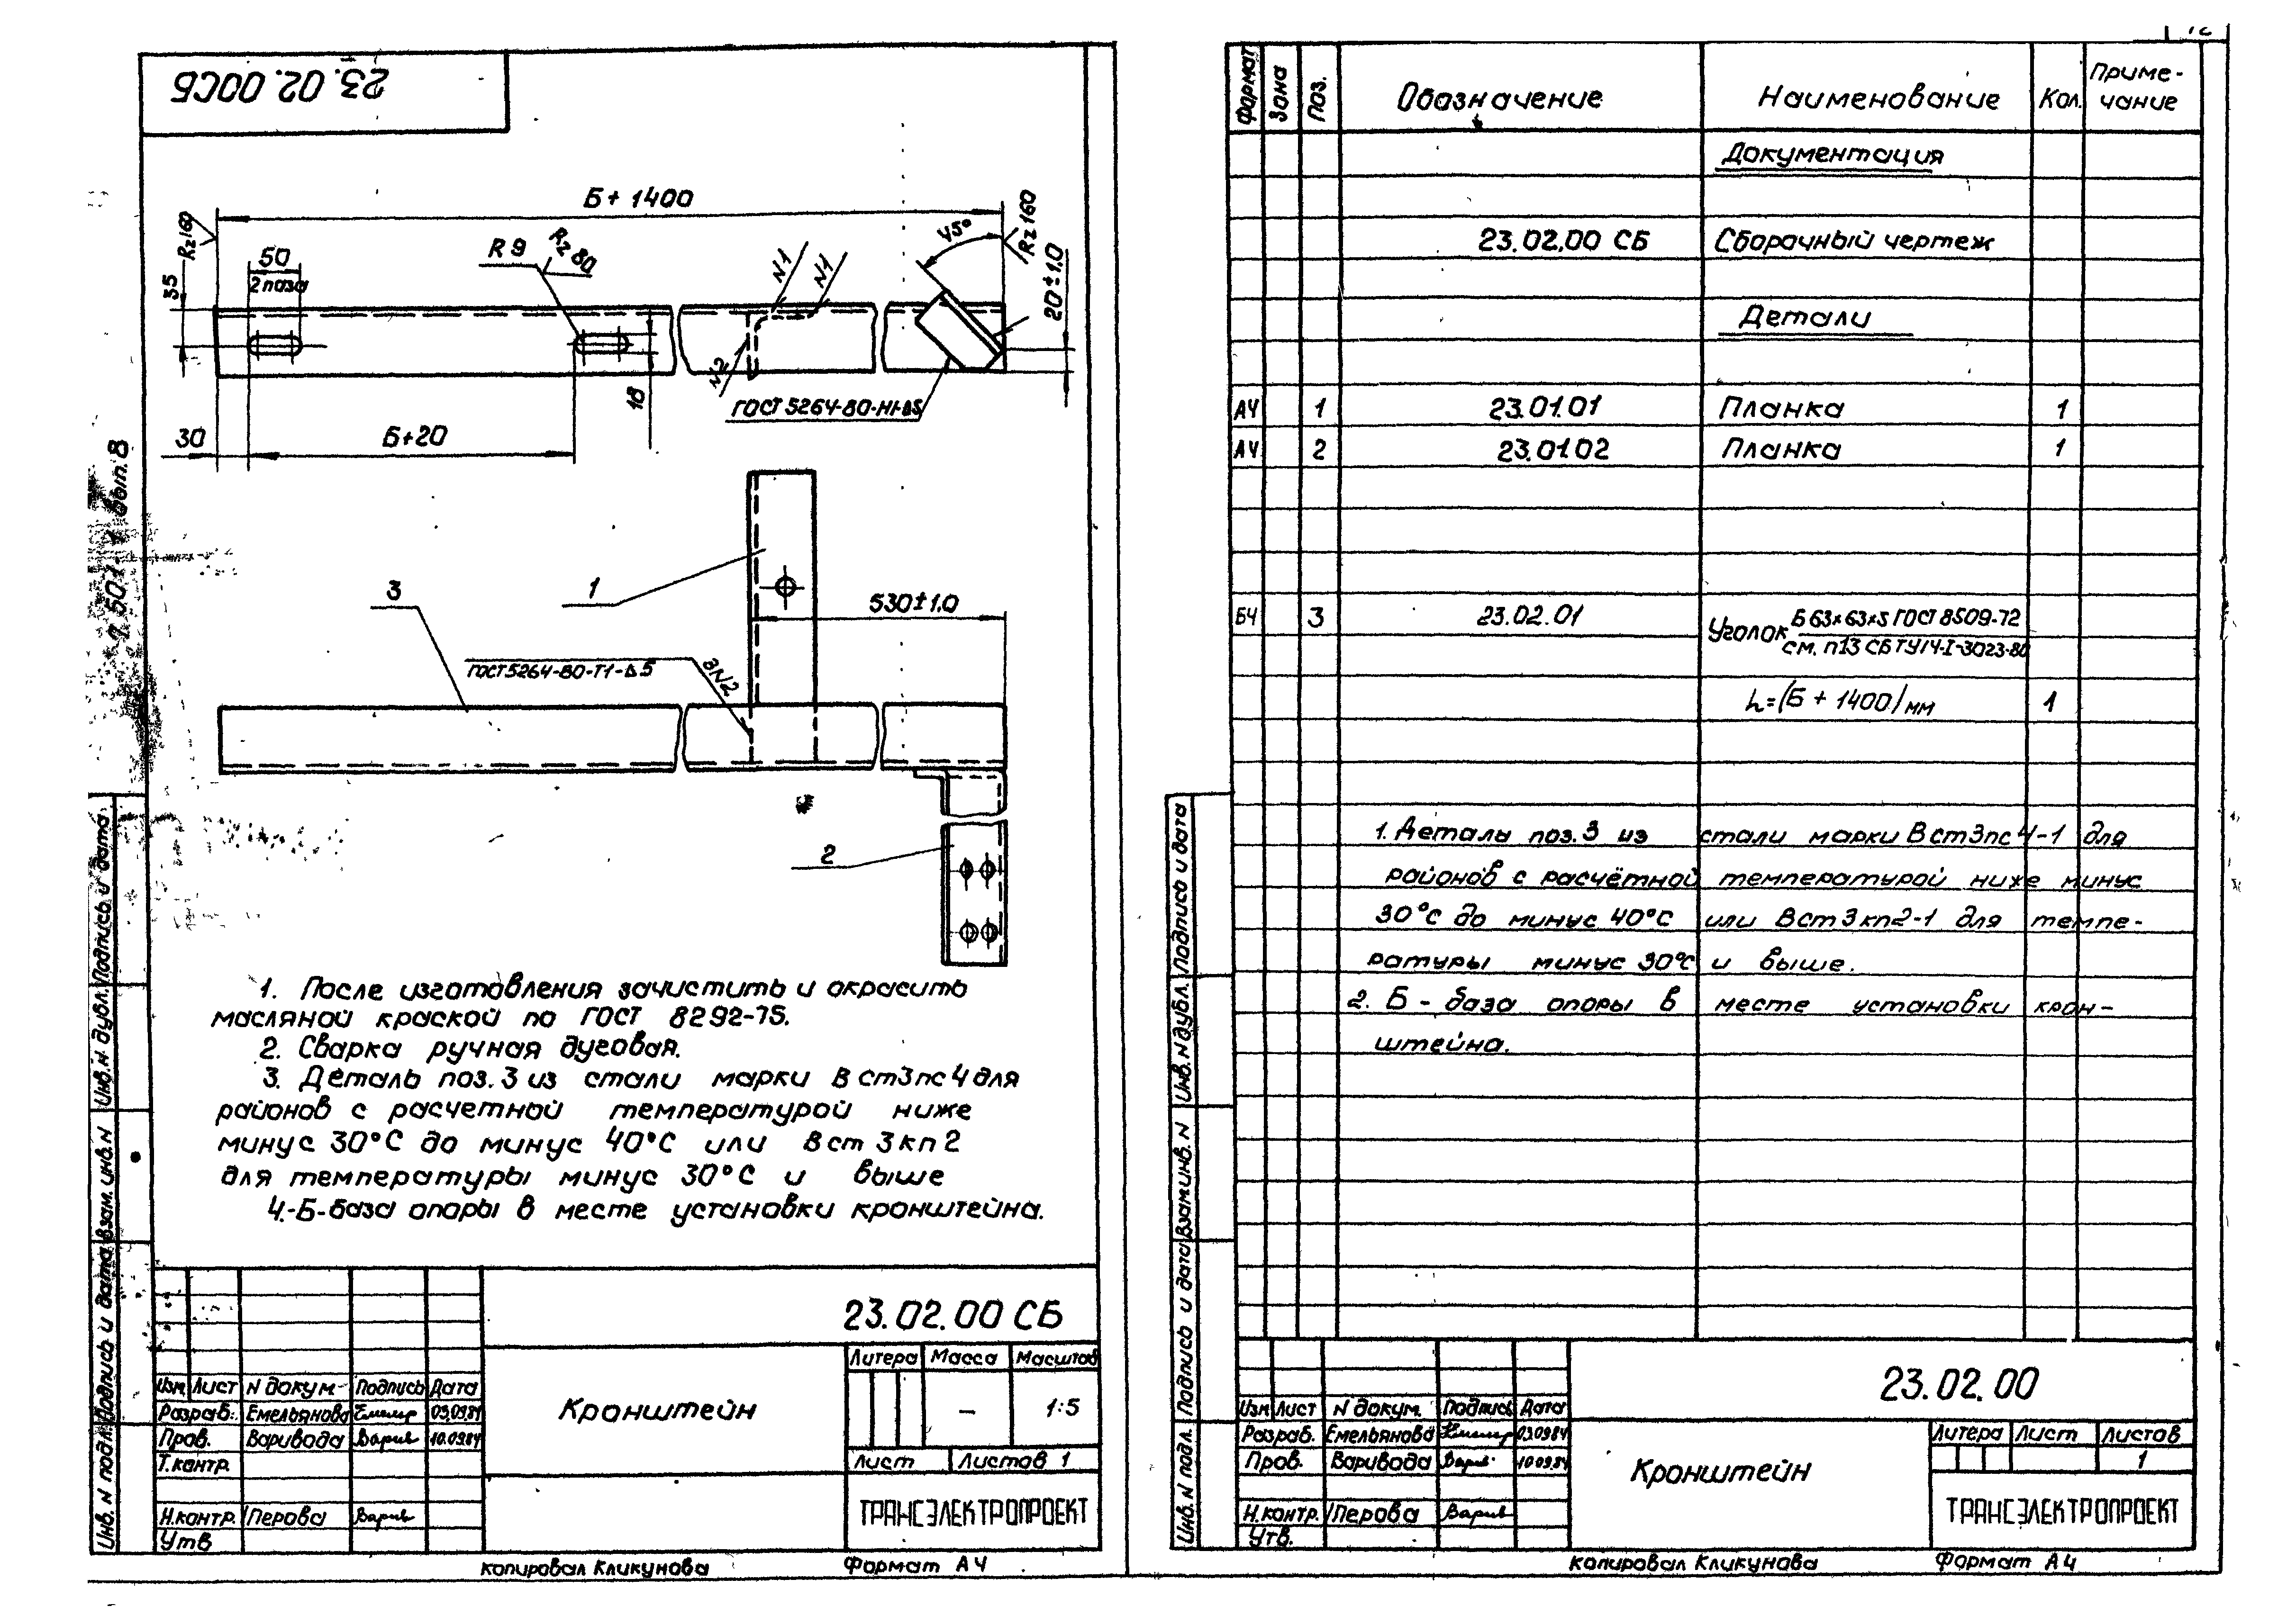 23.02.00СБ
7.501-1 вып. 8
Б+ 1400
Rz160
50
2 паза
35
R 9
Rz 80
N1
N1
45°
Rz160
20±1.0
N2
18
ГОСТ 5264-80-Н1-Δ5
30
Б+20
3
1
530±1.0
ГОСТ 5264-80-Т1-Δ5
N2
2
1. После изготовления зачистить и окрасить
масляной краской по ГОСТ 8292-75.
2. Сварка ручная дуговая.
3. Деталь поз. 3 из стали марки ВСт3пс4 для
районов с расчетной температурой ниже
минус 30°С до минус 40°С или Вст 3кп2
для температуры минус 30°С и выше
4.-Б-база опоры в месте установки кронштейна.
Инв. N подл. Подпись и дата Взам. инв. N Инв. N дубл. Подпись и дата
23.02.00 СБ
Кронштейн
Литера Масса Масштаб
– 1:5
Лист Листов 1
ТРАНСЭЛЕКТРОПРОЕКТ
Изм Лист N докум. Подпись Дата
Разраб. Емельянова 03.09.84
Пров. Варивода Варив 10.09.84
Т.контр.
Н.контр. Перова Варив
Утв
копировал Кликунова Формат А4
Формат Зона Поз. Обозначение Наименование Кол. Приме-
чание
Документация
23.02.00 СБ Сборочный чертеж
Детали
А4 1 23.01.01 Планка 1
А4 2 23.01.02 Планка 1
БЧ 3 23.02.01 Уголок Б 63×63×5 ГОСТ 8509-72
см. п13 СБ ТУ14-I-3023-80
L=(Б + 1400)мм 1
1. Деталь поз. 3 из стали марки ВСт3пс4-1 для
районов с расчётной температурой ниже минус
30°С до минус 40°С или ВСт3кп2-1 для темпе-
ратуры минус 30°С и выше.
2. Б - база опоры в месте установки крон-
штейна.
Инв. N подл. Подпись и дата Взам.инв. N Инв. N дубл. Подпись и дата
23.02.00
Кронштейн
Литера Лист Листов
1
ТРАНСЭЛЕКТРОПРОЕКТ
Изм Лист N докум. Подпись Дата
Разраб. Емельянова 03.09.84
Пров. Варивода Варив 10.09.84
Н.контр. Перова Варив
Утв.
копировал Кликунова Формат А4